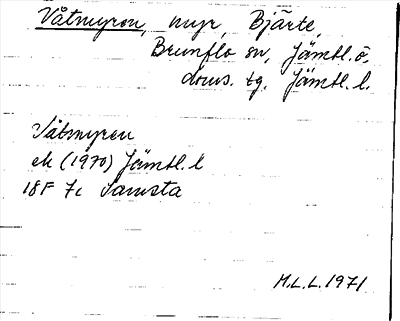 Våtmyren, myr, Bjärte,
Brunflo sn, Jämtl. ö.
doms. tg. Jämtl. l.
Våtmyren
ek (1970) Jämtl. l
18F 7c Tamsta
H.L.L. 1971